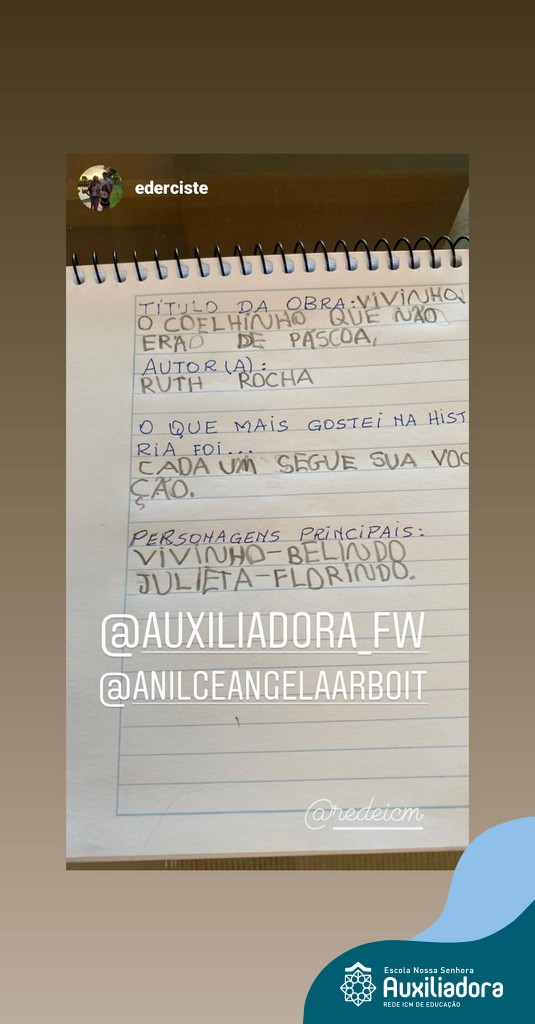 ederciste
TÍTULO DA OBRA: VIVINHO,
O COELHINHO QUE NÃO
ERA DE PÁSCOA,
AUTOR(A):
RUTH ROCHA
O QUE MAIS GOSTEI NA HIST
RIA FOI...
CADA UM SEGUE SUA VOC
ÇÃO.
PERSONAGENS PRINCIPAIS:
VIVINHO-BELINDO
JULIETA-FLORINDO.
@AUXILIADORA_FW
@ANILCEANGELAARBOIT
@redeicm
Escola Nossa Senhora
Auxiliadora
REDE ICM DE EDUCAÇÃO